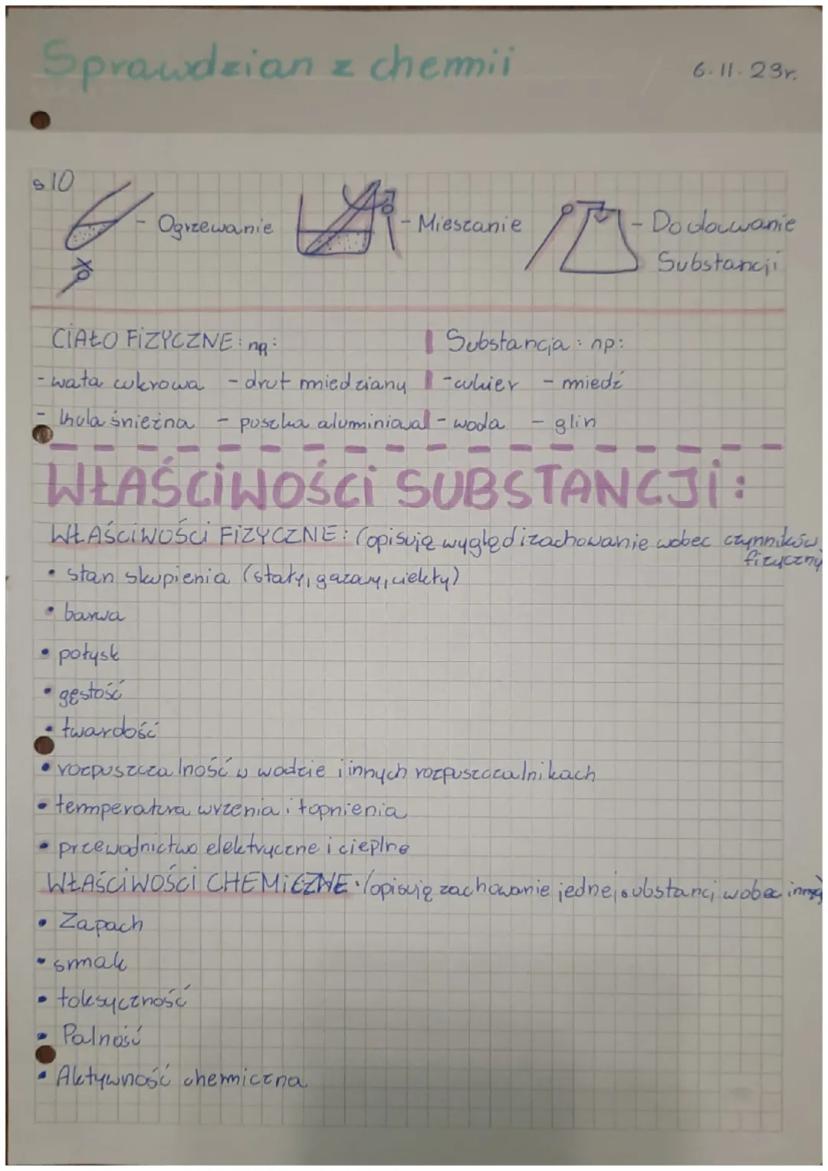 Sprawdzian z chemii
6.11.23r.
s10
- Ogrzewanie
- Mieszanie
- Dodawanie
Substancji
CIAŁO FIZYCZNE: np:
Substancja: np:
- wata cukrowa - drut miedziany
- cukier - miedź
- kula śnieżna - puszka aluminiowa
- woda - glin
WŁAŚCIWOŚCI SUBSTANCJI:
WŁAŚCIWOŚCI FIZYCZNE: (opisują wygląd i zachowanie wobec czynników
fizyczny
• stan skupienia (stały, gazowy, ciekły)
• barwa
• połysk
• gęstość
• twardość
• rozpuszczalność w wodzie i innych rozpuszczalnikach
• temperatura wrzenia i topnienia
• przewodnictwo elektryczne i cieplne
WŁAŚCIWOŚCI CHEMICZNE: (opisują zachowanie jednej substancj wobec innej
• Zapach
• smak
• toksyczność
• Palność
• Aktywność chemiczna